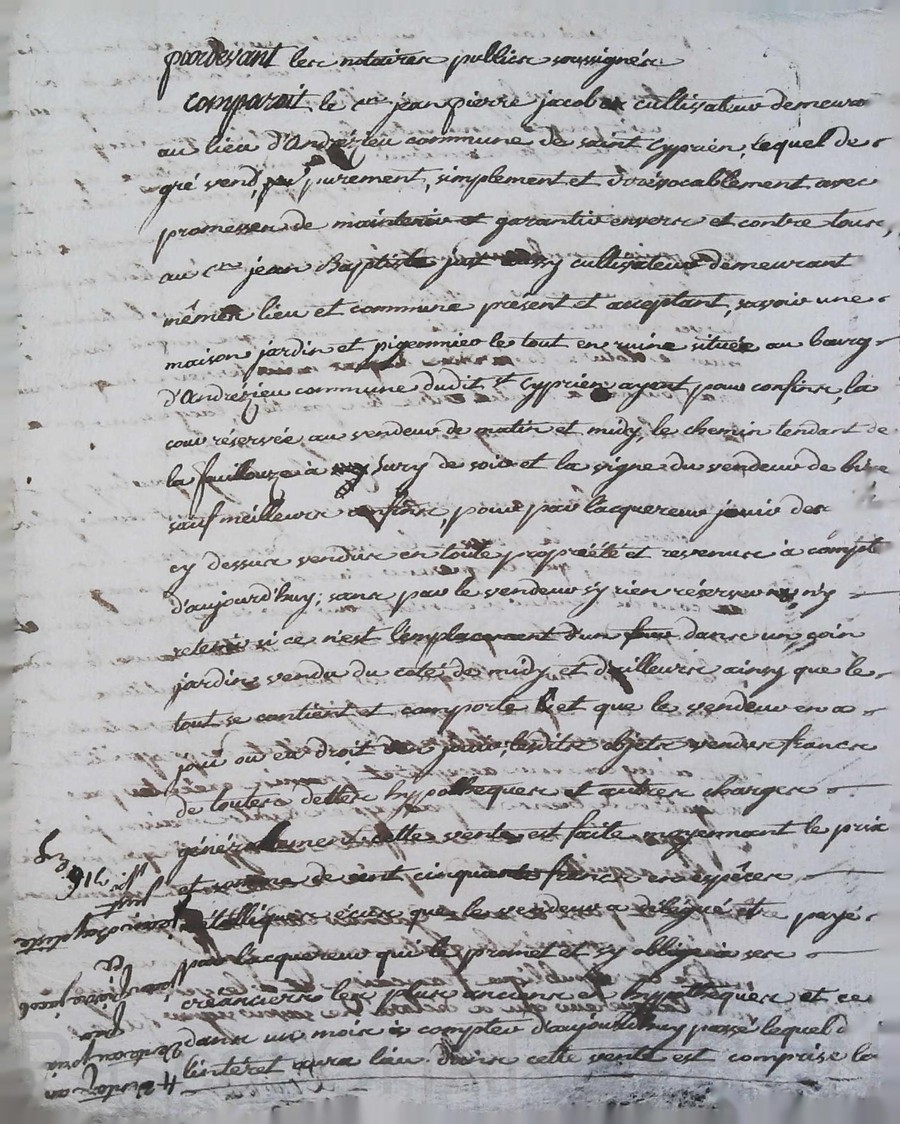 pardevant les notaires publics soussignés
comparait le cen jean pierre jacob cultivateur demeura
au lieu d'Andrézieu commune de saint Cyprien, lequel de
gré vend, purement, simplement et irrévocablement avec
promesse de maintenir et garantir envers et contre tous,
au cen jean Baptiste just cultivateur demeurant
même lieu et commune présent et acceptant, savoir une
maison jardin et pigeonnier le tout en ruine située au bourg
d'Andrézieu commune dudit st Cyprien ayant pour confins, la
cour réservée au vendeur de matin et midy, le chemin tendant de
la fouillouze à Sury de soir et la vigne du vendeur de bise
sauf meilleurs confins, pour par lacquereur jouir des
cy dessus vendus en toute propriété et revenus à compt
d'aujourd'huy, sans par le vendeur s'y rien réserver ny
retenir si ce n'est l'emplacement d'un four dans un coin
jardin vendu du coté de midy, et d'ailleurs ainsy que le
tout se contient et comporte et que le vendeur en a
joui ou eu droit jouir, lesdits objets vendus francs
de toutes dettes hypotheques et autres charges
généralement cette vente est faite moyennant le prix
et somme de cent cinquante francs en espèces
métalliques écus que le vendeur a délégué être payé
par lacquereur qui le promet et s'y oblige à ses
creanciers les plus anciens en hypotheques et ce
dans un mois à compter d'aujourd'huy passé lequel
linterêt aura lieu. dans cette vente est comprise la